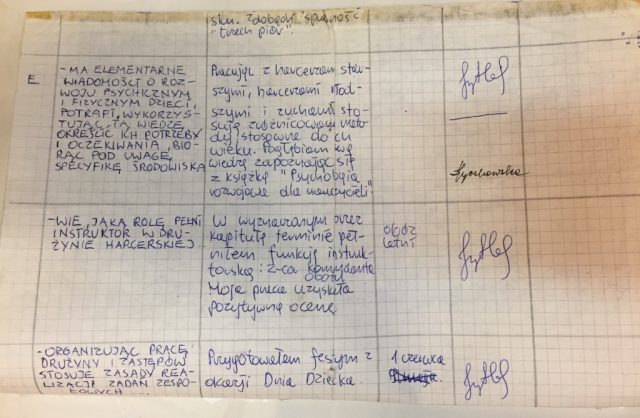 sku. Zdobądź sprawność
"trzech piór".
E
- MA ELEMENTARNE
WIADOMOŚCI O ROZ-
WOJU PSYCHICZNYM
I FIZYCZNYM DZIECI,
POTRAFI, WYKORZYS-
TUJĄC TĄ WIEDZĘ,
OKREŚLIĆ ICH POTRZEBY
I OCZEKIWANIA, BIO-
RĄC POD UWAGĘ
SPECYFIKĘ ŚRODOWISKA
Pracując z harcerzam star-
szymi, harcerzami młod-
szymi i zuchami sto-
suję zróżnicowane meto-
dy stosowne do ich
wieku. Pogłębiam swą
wiedzę zapoznając się
z książką "Psychologia
rozwojowa dla nauczycieli".
- WIE, JAKĄ ROLĘ PEŁNI
INSTRUKTOR W DRU-
ŻYNIE HARCERSKIEJ.
W wyznaczonym przez
kapitułę terminie peł-
niłem funkcję instruk-
torską: z-ca komendanta
obozu
Moja praca uzyskała
pozytywną ocenę
obóz
letni
- ORGANIZUJĄC PRACĘ
DRUŻYNY I ZASTĘPÓW
STOSUJE ZASADY REA-
LIZACJI ZADAŃ ZESPO-
ŁOWYCH ...
Przygotowałem festyn z
okazji Dnia Dziecka
1 czerwca